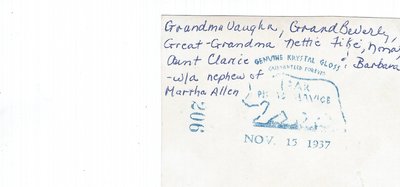 Grandma Vaughn, Grand Beverly,
Great-Grandma Nettie Fike, Nona,
Aunt Clarice & Barbara
GENUINE KRYSTAL GLOSS
GUARANTEED FOREVER
-w/a nephew of
Martha Allen
BEAR
PHOTO SERVICE
206
NOV. 15 1937